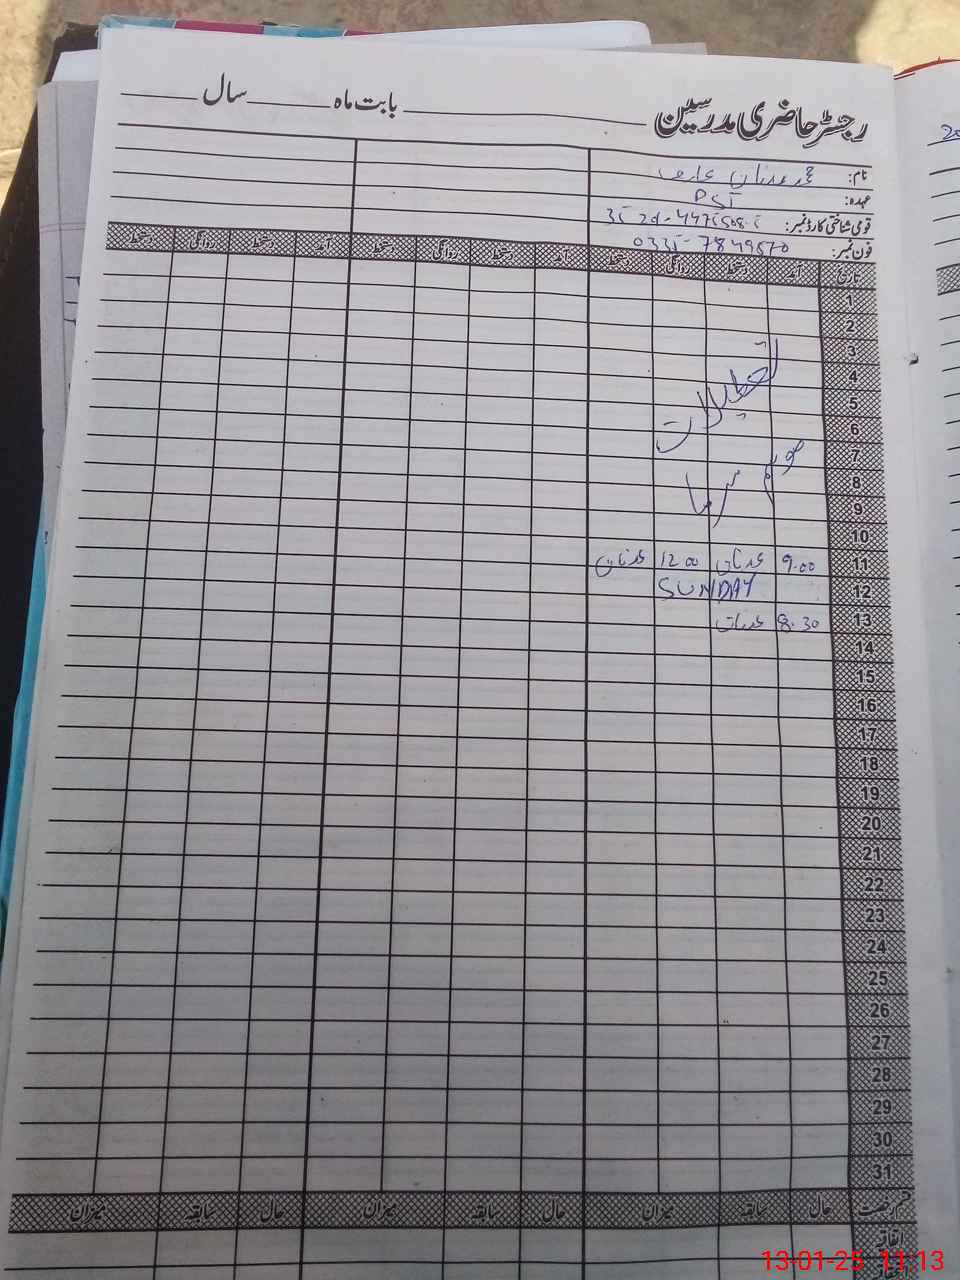 رجسٹر حاضری مدرسین ـــــ بابت ماہ ـــــ سال ـــــ
نام: محمد عدنان عارف
عہدہ: PST
قومی شناختی کارڈ نمبر:
فون نمبر: 0335-7849570
تاریخ آمد دستخط روانگی دستخط آمد دستخط روانگی دستخط آمد دستخط روانگی دستخط
1
2
3
4
5
6
7
8
9
10
تعطیلات
موسم سرما
11 9.00 عدنان 12 00 عدنان
12 SUNDAY
13 8.30 عدنان
14
15
16
17
18
19
20
21
22
23
24
25
26
27
28
29
30
31
قسم رخصت حال سابقہ میزان حال سابقہ میزان حال سابقہ میزان
اتفاقیہ
13-01-25 11:13